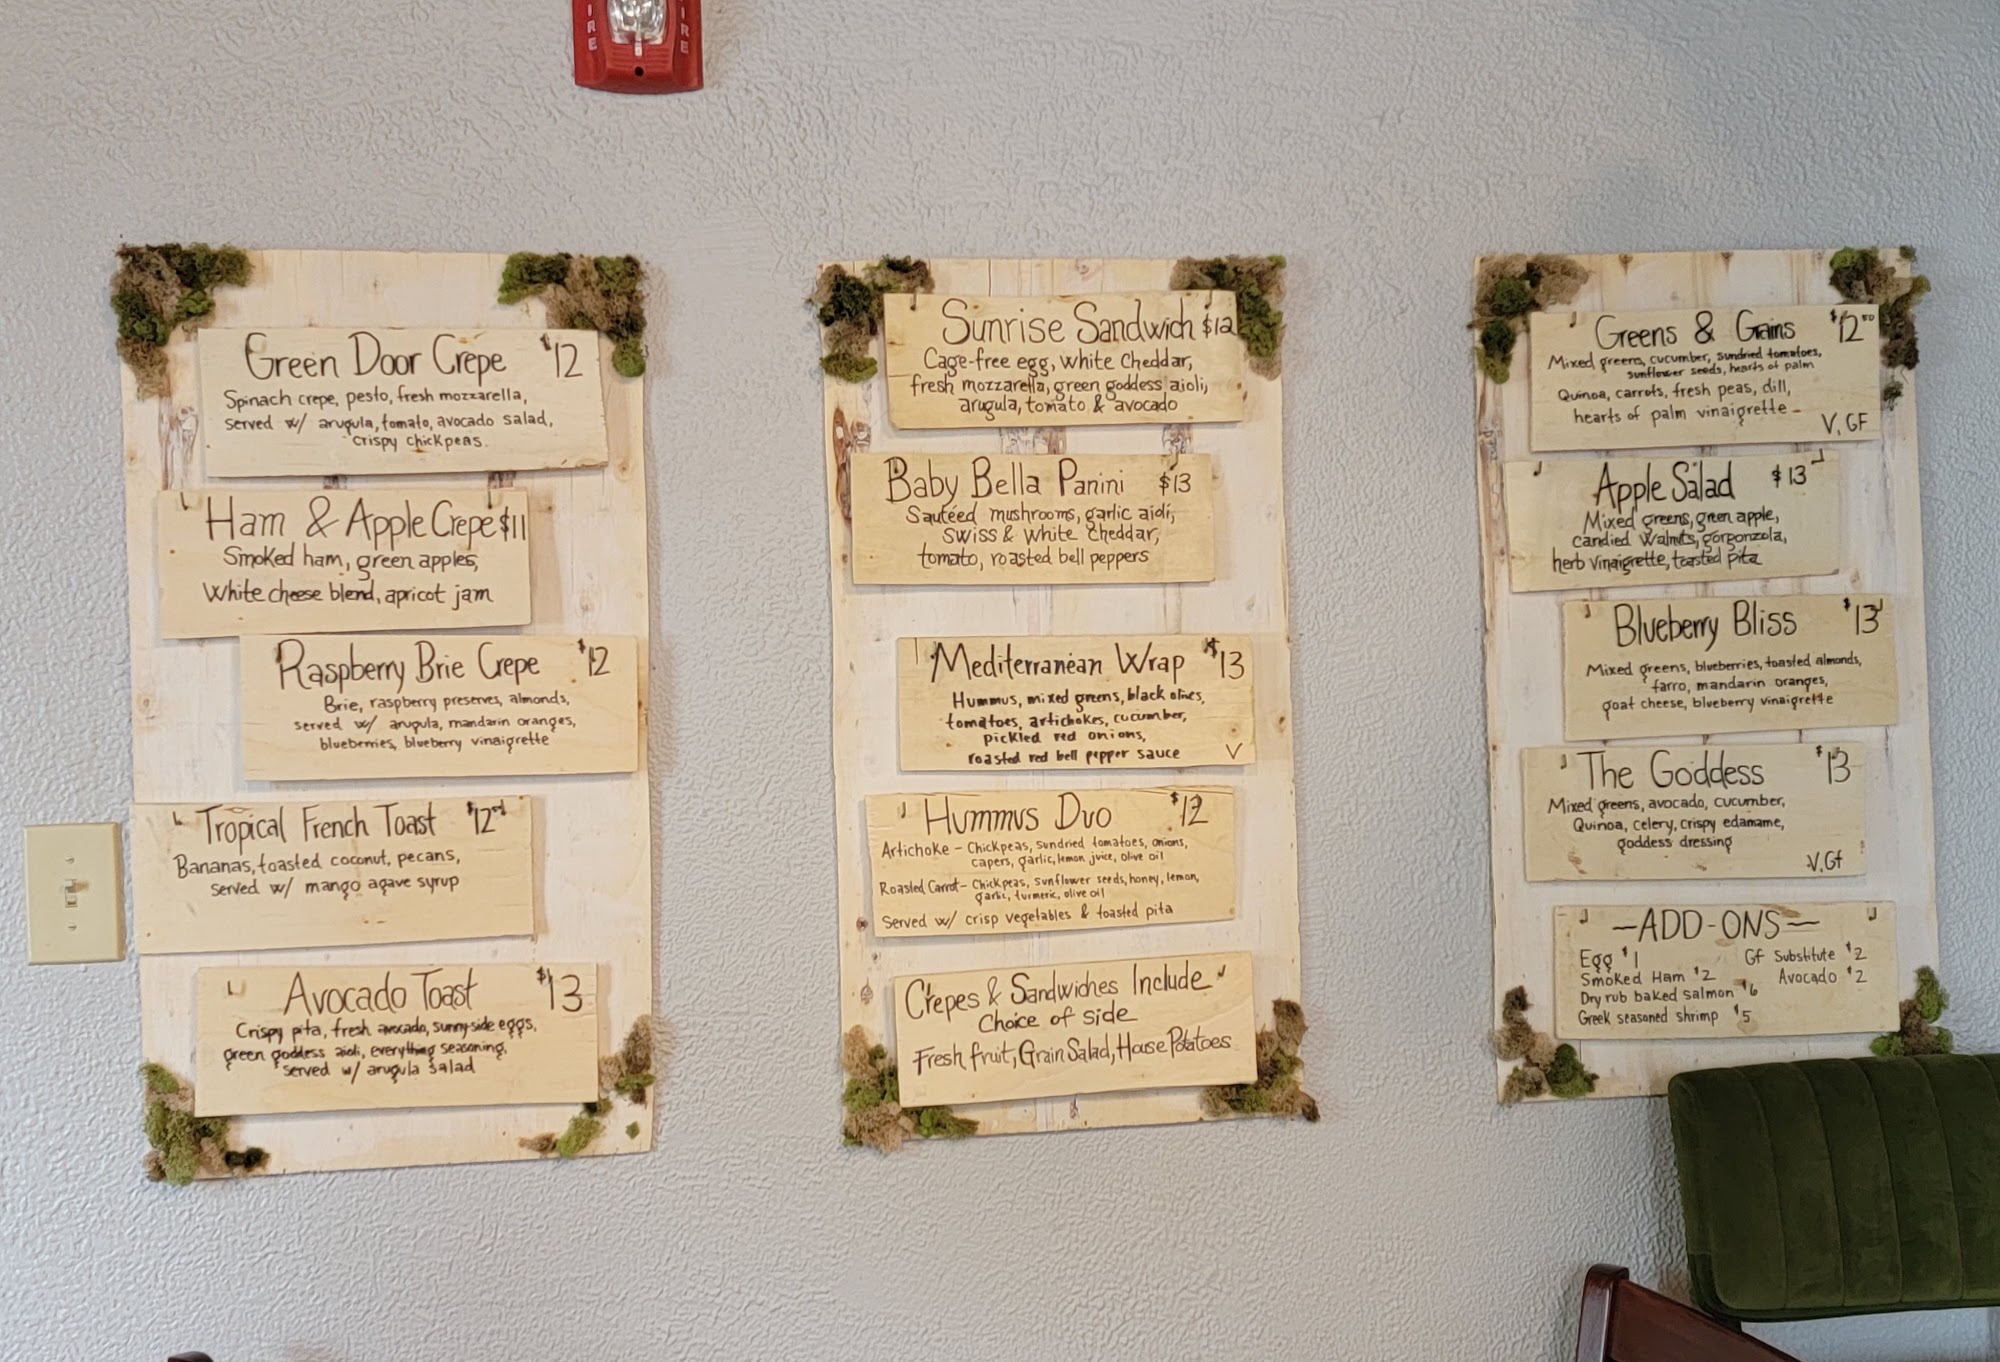 FIRE
FIRE
Green Door Crepe $12
Spinach crepe, pesto, fresh mozzarella,
served w/ arugula, tomato, avocado salad,
crispy chickpeas.
Ham & Apple Crepe $11
Smoked ham, green apples,
White cheese blend, apricot jam
Raspberry Brie Crepe $12
Brie, raspberry preserves, almonds,
served w/ arugula, mandarin oranges,
blueberries, blueberry vinaigrette
Tropical French Toast $12
Bananas, toasted coconut, pecans,
served w/ mango agave syrup
Avocado Toast $13
Crispy pita, fresh avocado, sunny-side eggs,
green goddess aioli, everything seasoning,
served w/ arugula salad
Sunrise Sandwich $12
Cage-free egg, white cheddar,
fresh mozzarella, green goddess aioli,
arugula, tomato & avocado
Baby Bella Panini $13
Sautéed mushrooms, garlic aioli,
swiss & white cheddar,
tomato, roasted bell peppers
Mediterranean Wrap $13
Hummus, mixed greens, black olives,
tomatoes, artichokes, cucumber,
pickled red onions,
roasted red bell pepper sauce V
Hummus Duo $12
Artichoke - Chickpeas, sundried tomatoes, onions,
capers, garlic, lemon juice, olive oil
Roasted Carrot - Chickpeas, sunflower seeds, honey, lemon,
garlic, turmeric, olive oil
Served w/ crisp vegetables & toasted pita
Crepes & Sandwiches Include
Choice of side
Fresh fruit, Grain Salad, House Potatoes
Greens & Grains $12 50
Mixed greens, cucumber, sundried tomatoes,
sunflower seeds, hearts of palm
Quinoa, carrots, fresh peas, dill,
hearts of palm vinaigrette -
V, GF
Apple Salad $13
Mixed greens, green apple,
candied walnuts, gorgonzola,
herb vinaigrette, toasted pita
Blueberry Bliss $13
Mixed greens, blueberries, toasted almonds,
farro, mandarin oranges,
goat cheese, blueberry vinaigrette
The Goddess $13
Mixed greens, avocado, cucumber,
Quinoa, celery, crispy edamame,
goddess dressing
V, Gf
~ADD-ONS~
Egg $1 Gf Substitute $2
Smoked Ham $2 Avocado $2
Dry rub baked salmon $6
Greek seasoned shrimp $5